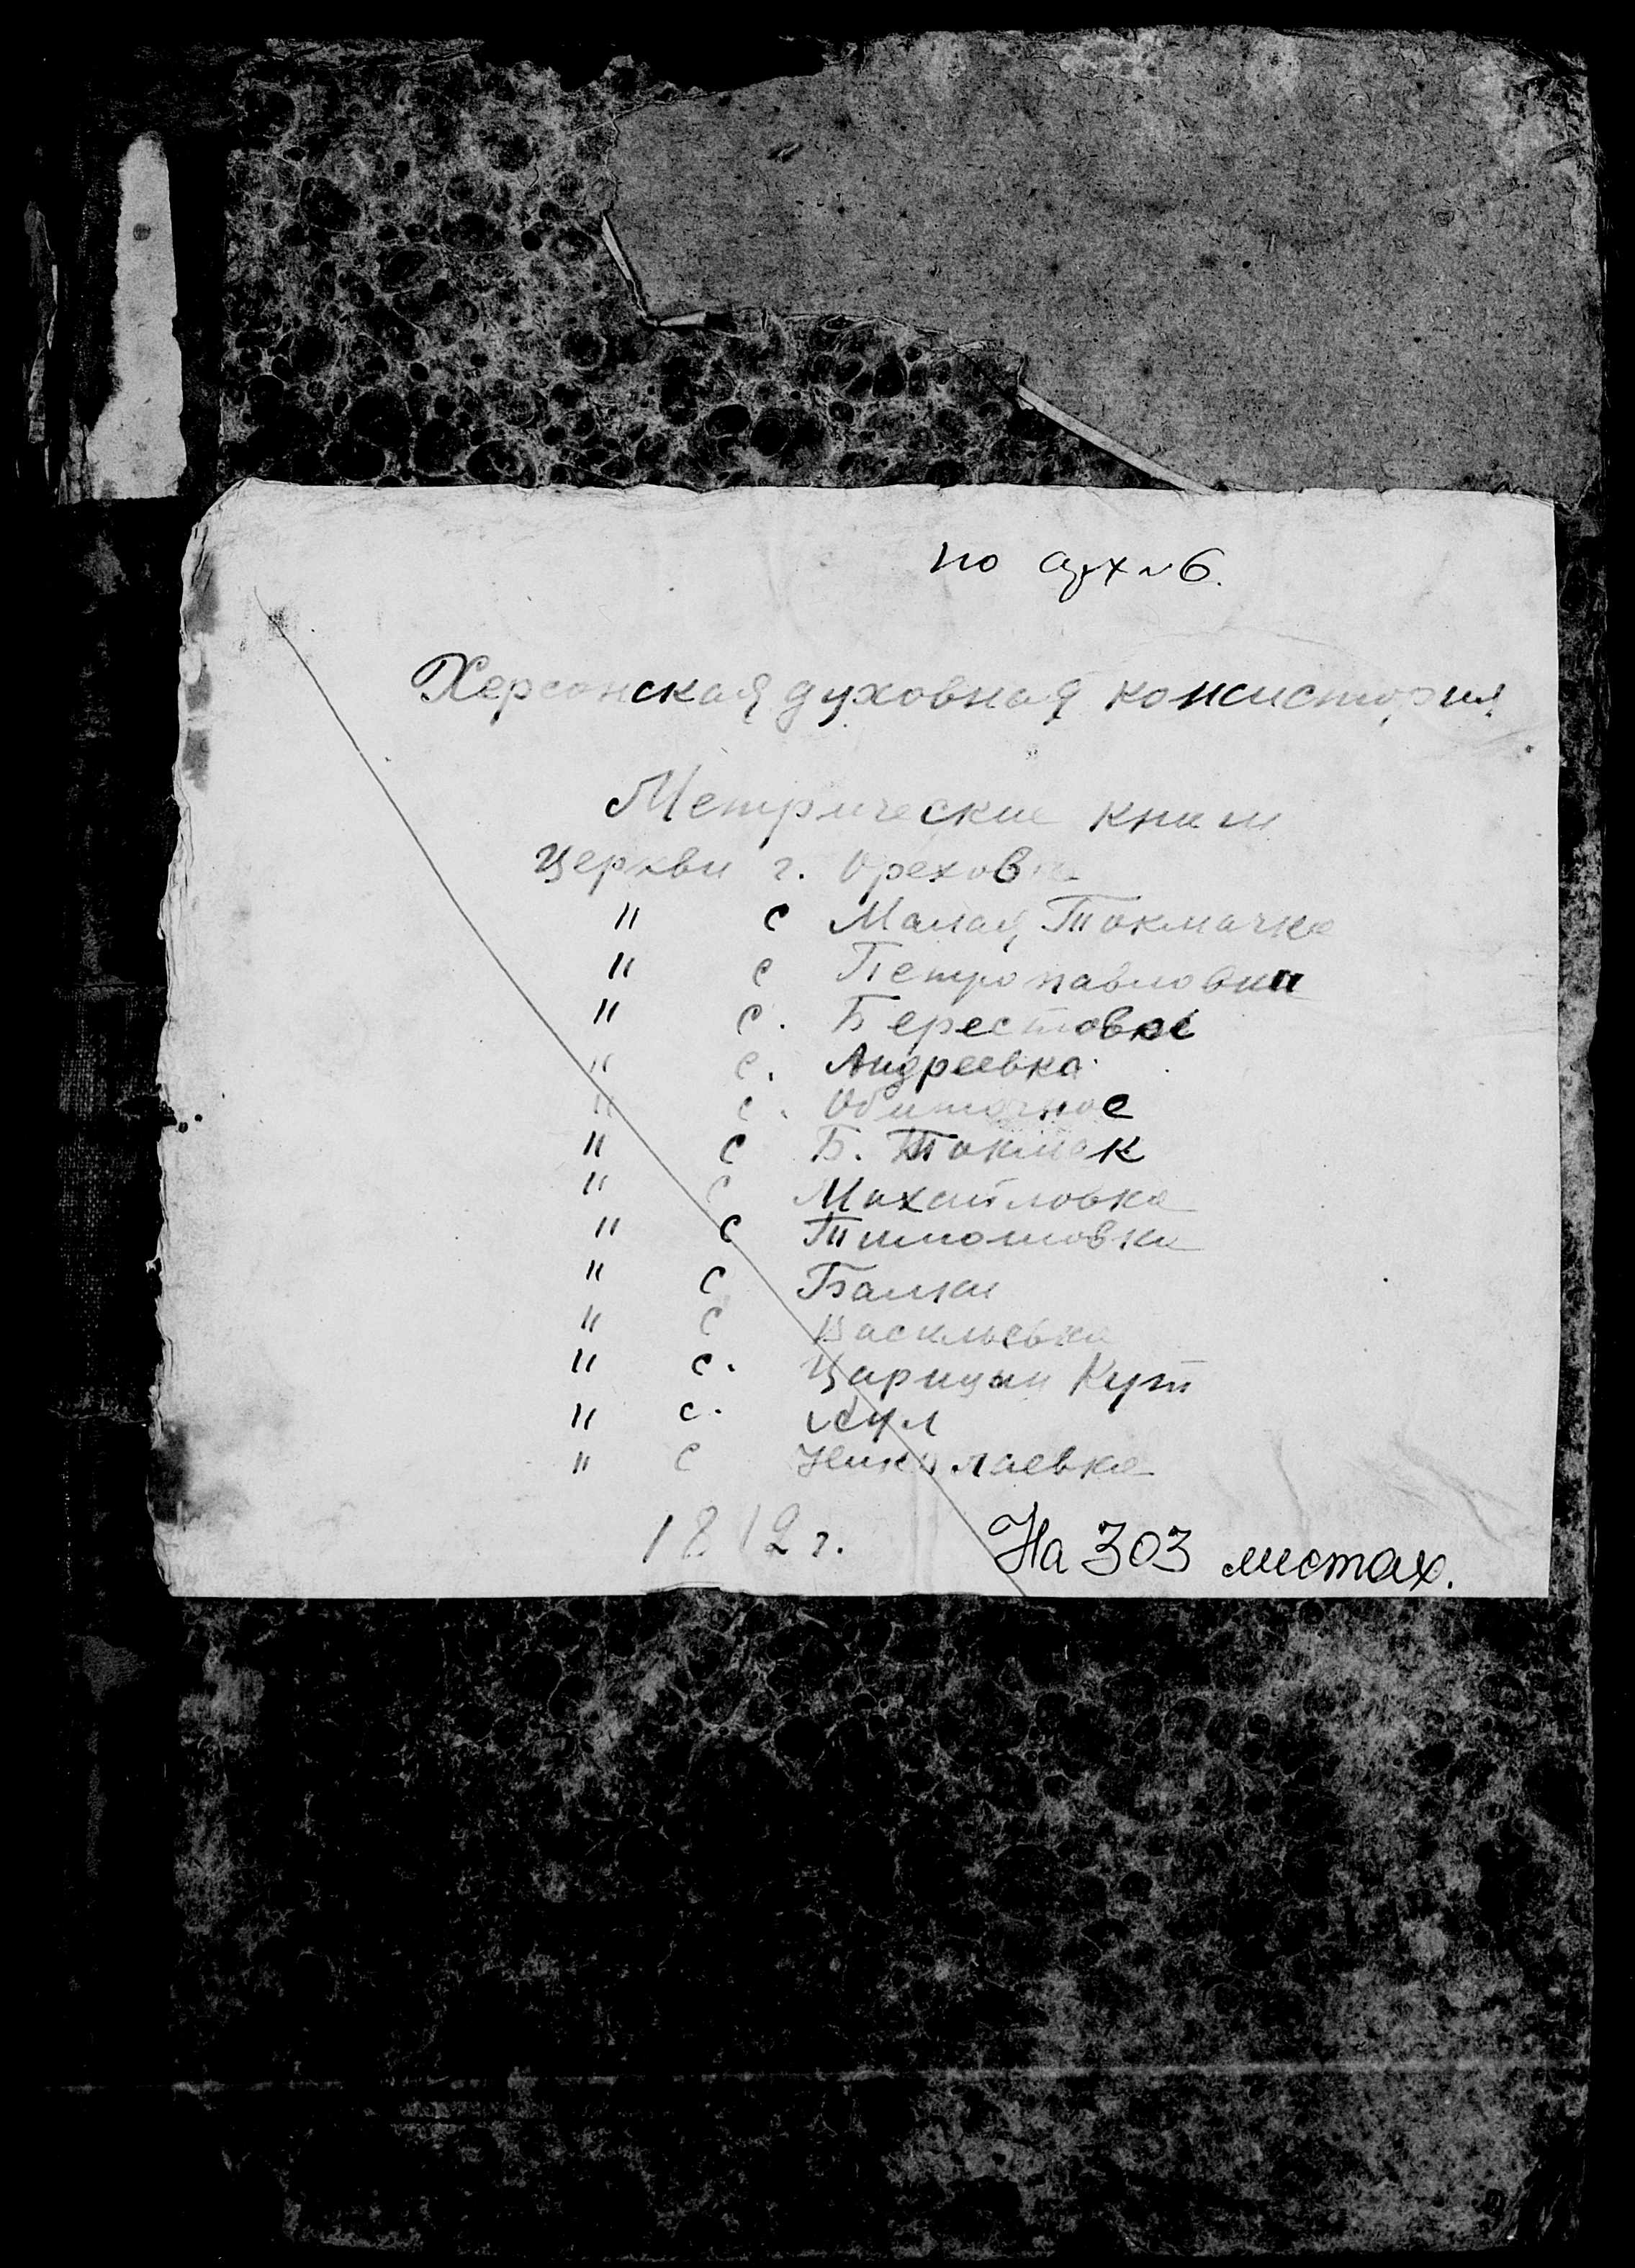 по арх №6.
Херсонская духовная консистория
Метрические книги
Церкви г. Орехова
" с Малая Токмачка
" с Петропавловка
" с. Берестовое
" с. Андреевка
" с. Обиточное
" с Б. Токмак
" с Михайловка
" с Тимошовка
" с Балки
" с Васильевка
" с. Царицын Кут
" с.
" с Николаевка
1812 г.
На 303 листах.